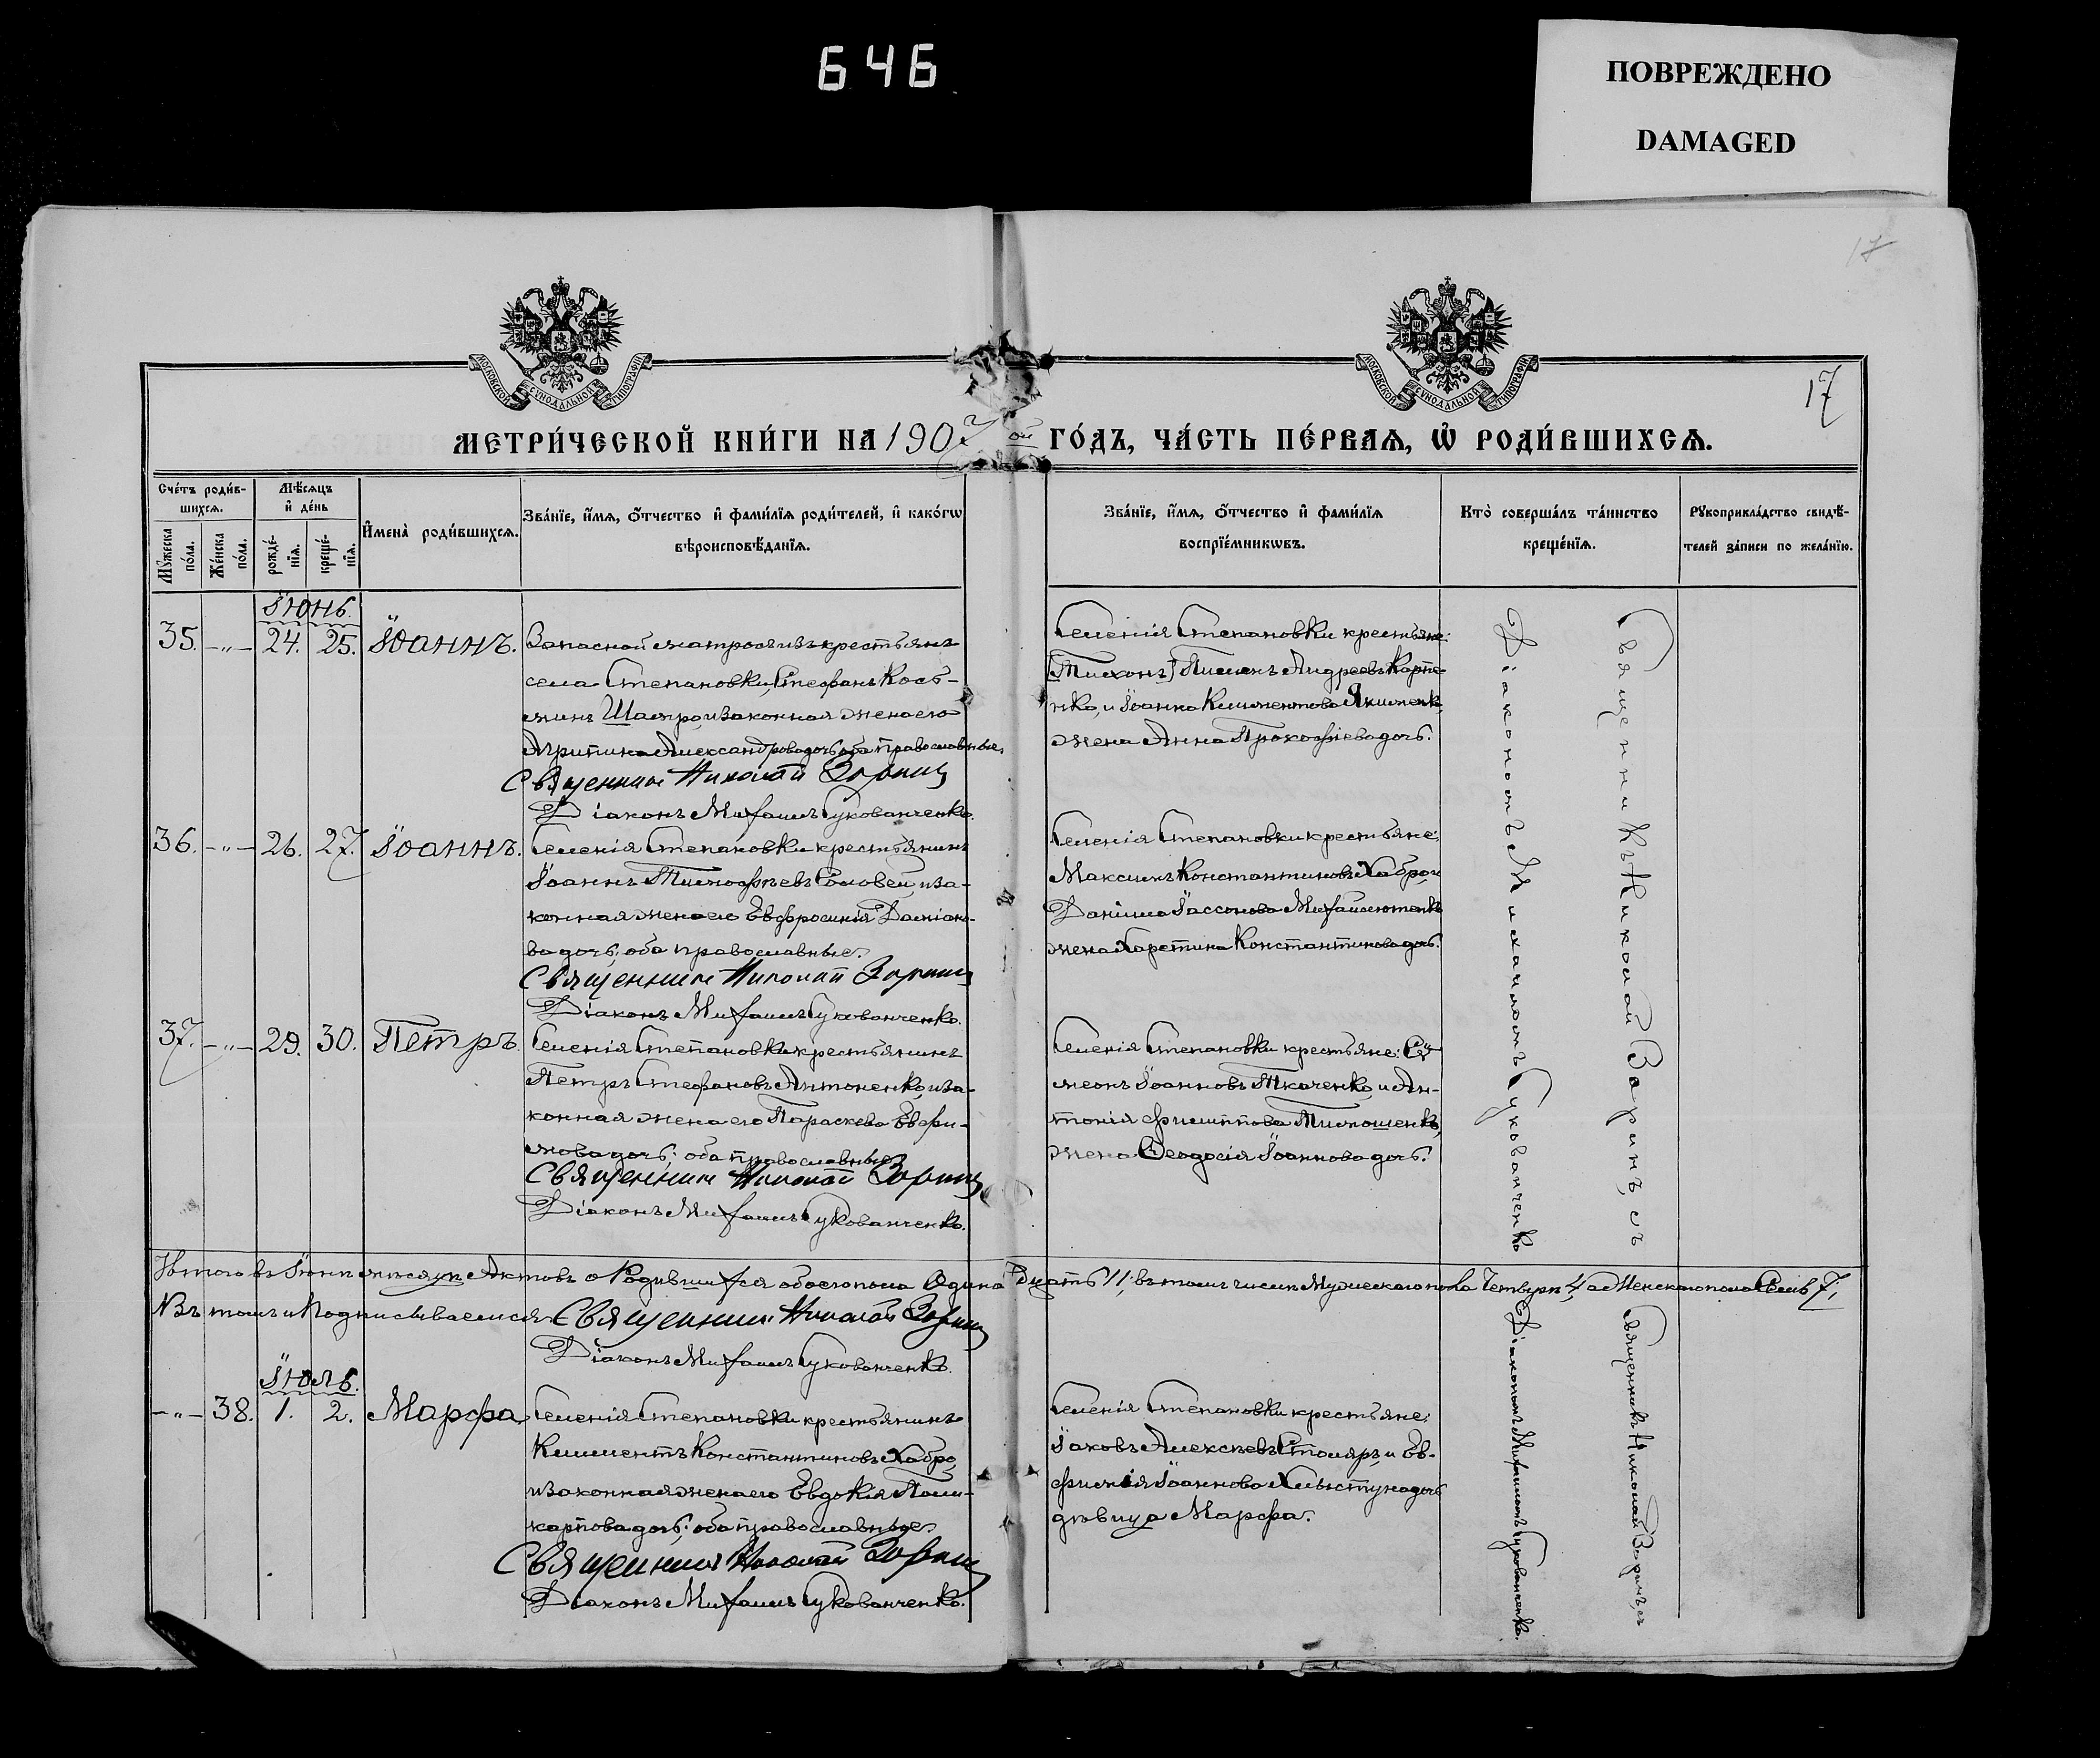 646
ПОВРЕЖДЕНО
DAMAGED
17
МОСКОВСКОЙ СѴНОДАЛЬНОЙ ТИПОГРАФІИ
МОСКОВСКОЙ СѴНОДАЛЬНОЙ ТИПОГРАФІИ
17
МЕТРИ́ЧЕСКОЙ КНИ́ГИ НА 1907 ой ГО́ДЪ, ЧА́СТЬ ПЕ́РВАѦ, Ѡ҆ РОДИ́ВШИХСѦ.
Сче́тъ роди́в-
шихсѧ.
Мꙋ́жеска по́ла.
Же́нска по́ла.
Мѣ́сѧцъ
и҆ де́нь
рожде́-
нїѧ.
креще́-
нїѧ.
И҆мена̀ роди́вшихсѧ.
Зва́нїе, и҆́мѧ, ѻ҆́тчество и҆ фами́лїѧ роди́телей, и҆ како́гѡ
вѣроисповѣ́данїѧ.
Зва́нїе, и҆́мѧ, ѻ҆́тчество и҆ фами́лїѧ
воспрїе́мникѡвъ.
Кто̀ соверша́лъ та́инство
креще́нїѧ.
Рꙋкоприкла́дство свидѣ́-
телей за́писи по жела́нїю.
Іюнь.
35. -"- 24. 25. Іоаннъ.
Запасной матросъ изъ крестьянъ
села Степановки, Стефанъ Козь-
минъ Шапро и законная жена его
Агрипина Александрова дочь оба православные.
Священникъ Николай Заринъ
Діаконъ Михаилъ Сукованченко.
Селенія Степановки крестьяне:
[Тихонъ] Пименъ Андреевъ Карпе-
нко, и Іоанна Климентова Якименко,
жена Анна Прокофіева дочь.
36. -"- 26. 27. Іоаннъ.
Селенія Степановки крестьянинъ
Іоаннъ Тимофѣевъ Соловей, и за-
конная жена его Евфросинія Даміано-
ва дочь; оба православные.
Священникъ Николай Заринъ
Діаконъ Михаилъ Сукованченко.
Селенія Степановки крестьяне:
Максимъ Константиновъ Хабро, и
Даніила Іассонова Михайлютенко
жена Харетина Константинова дочь.
37. -"- 29. 30. Петръ.
Селенія Степановки крестьянинъ
Петръ Стефановъ Антоненко, и за-
конная жена его Параскева Евфи-
мова дочь; оба православные.
Священникъ Николай Заринъ
Діаконъ Михаилъ Сукованченко.
Селенія Степановки крестьяне: Су-
меонъ Іоанновъ Ткаченко, и Ан-
тонія Филиппова Тимошенко,
жена Ѳеодосія Іоаннова дочь.
Діакономъ Михаиломъ Сукованченко
Священникъ Николай Заринъ, съ
Итого въ Іюнѣ мѣсяцѣ Актовъ о Родившихся обоего пола Одинадцать 11; въ томъ числѣ Мужескаго пола Четыре 4, а Женскаго пола Семь 7;
Въ томъ и Подписываемся Священникъ Николай Заринъ
Діаконъ Михаилъ Сукованченко.
Іюль.
-"- 38. 1. 2. Марфа
Селенія Степановки крестьянинъ
Климентъ Константиновъ Хабро,
и законная жена его Евдокія Поли-
карпова дочь; оба православные.
Священникъ Николай Заринъ
Діаконъ Михаилъ Сукованченко.
Селенія Степановки крестьяне:
Іаковъ Алексѣевъ Столяръ, и Ев-
фимія Іоаннова Хлыстуна дочь
дѣвица Марфа.
Діакономъ Михаиломъ Сукованченко.
Священникъ Николай Заринъ, съ